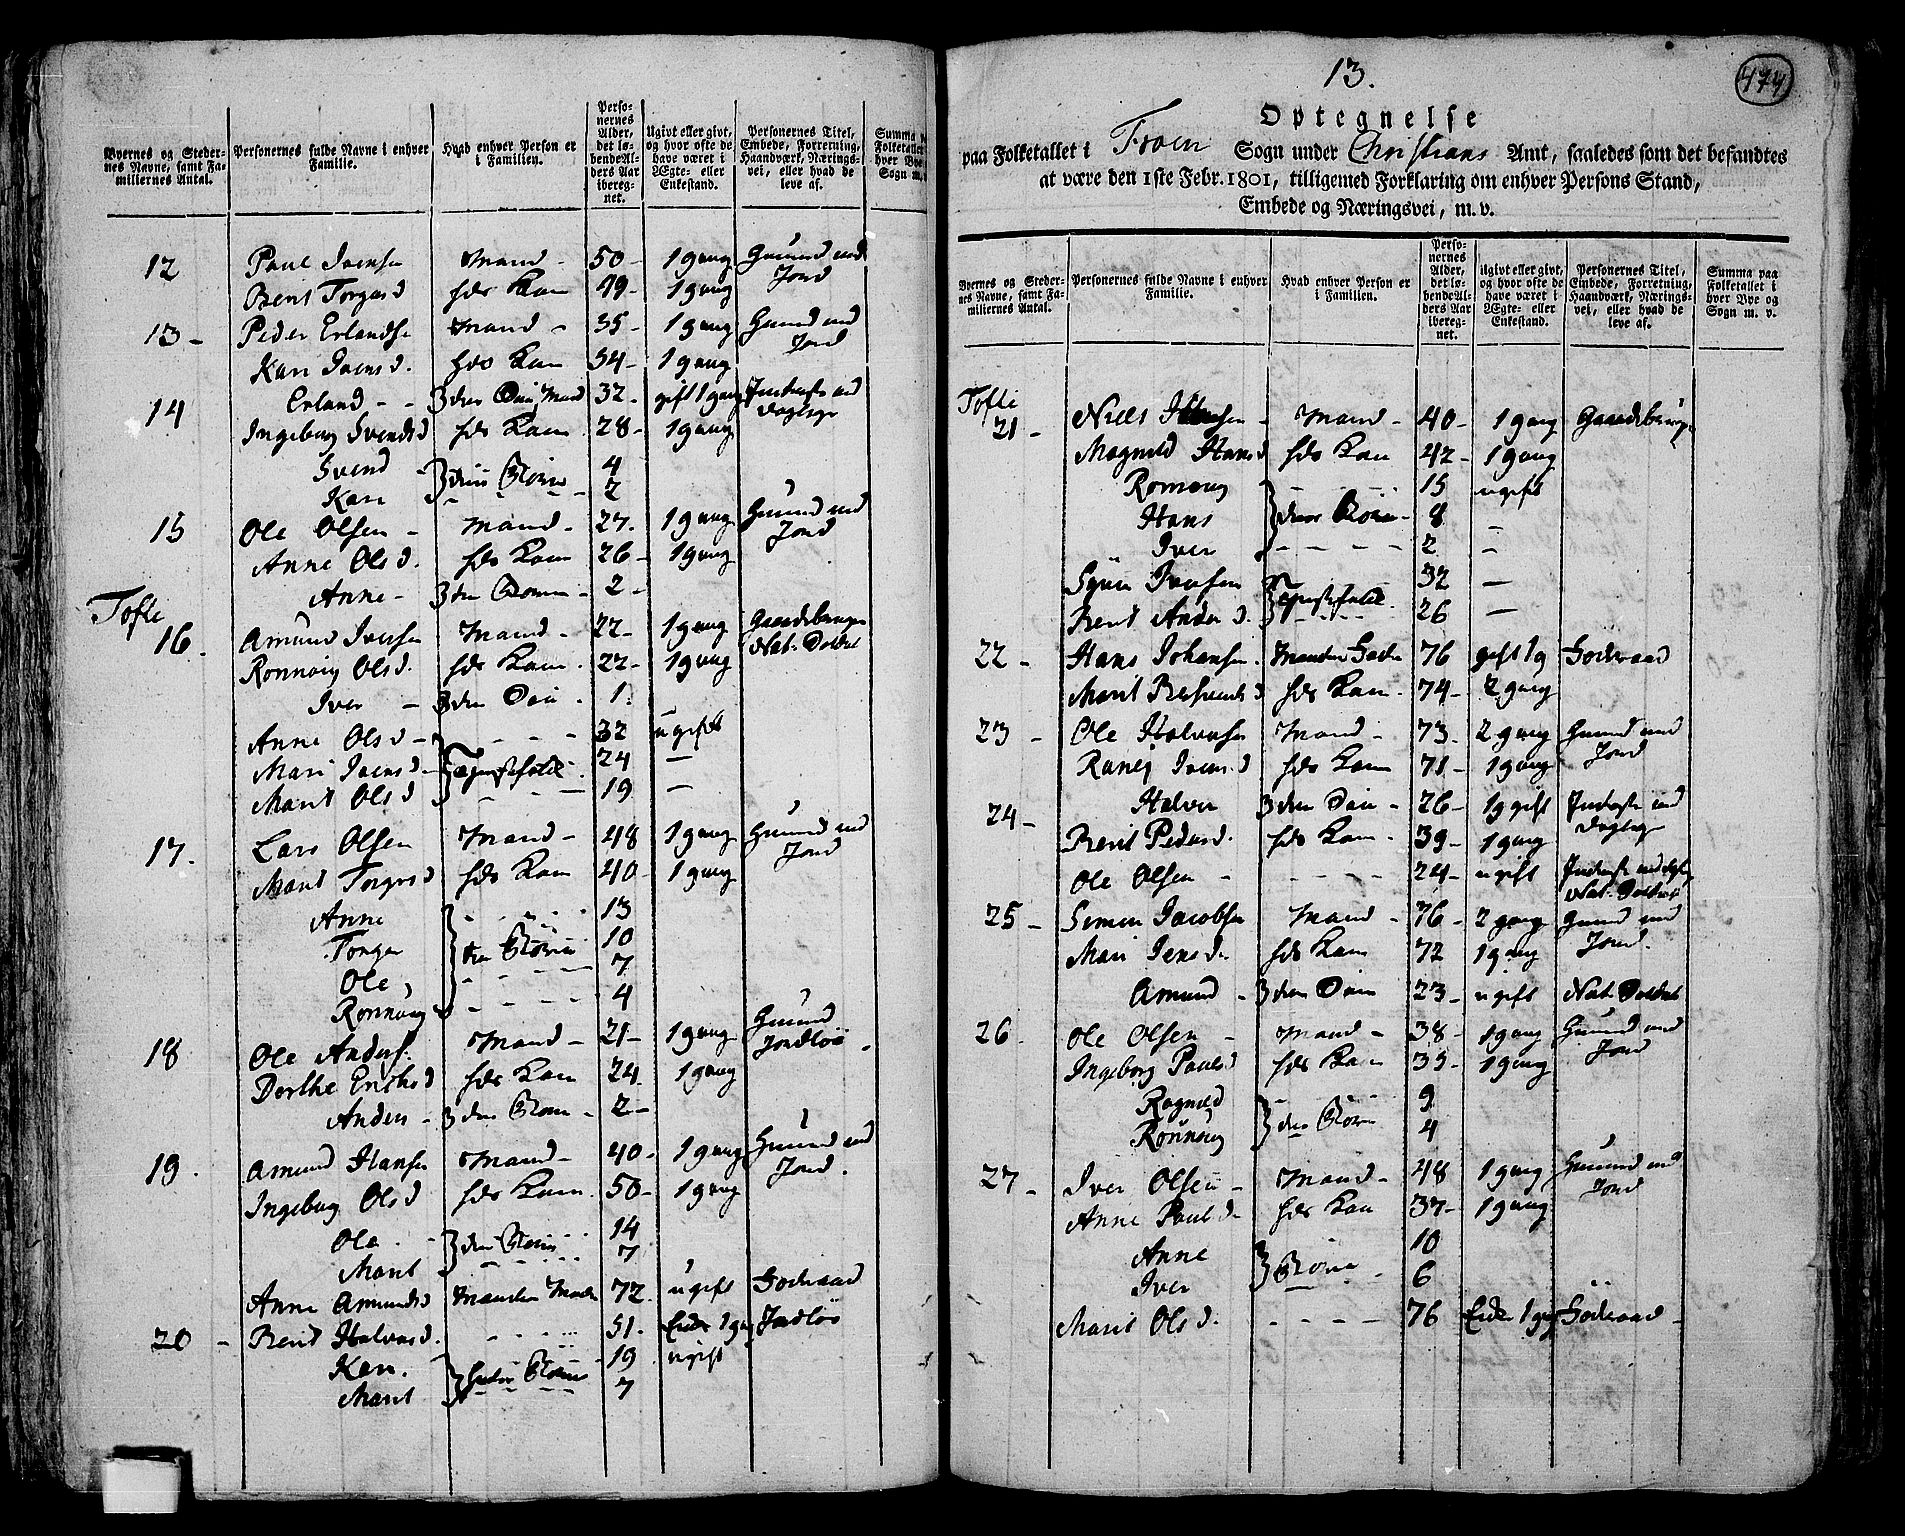 Byernes og Steder-
nes Navne, samt Fa-
miliernes Antal.
Personernes fulde Navne i enhver
Familie.
Hvad enhver Person er
i Familien.
Perso-
nernes
Alder,
det lø-
bende Al-
ders Aar
ibereg-
net.
Ugivt eller givt,
og hvor ofte de
have været i
Ægte- eller
Enkestand.
Personernes Titel,
Embede, Forretning,
Haandværk, Nærings-
vei, eller hvad de
leve af.
Summa
Folketallet
hver Bye
Sogn m.
12 Paul Iversen Mand - 50 - 1 gang Huusmd med
Berit Torgersd hds Kone 49 - 1 gang Jord
13 - Peder Erlandsen Mand - 35 - 1 gang Huusmd med
Kari Iversd. hds Kone 34 - 1 gang Jord
14 Erland - - deres Søn, Mand 32 - gift 1 gang Inderste med
Ingeborg Svendsd hds Kone 28 - 1 gang
Svend 4
Kari deres Børn 2
15 Ole Olsen - Mand - 27. 1 gang Huusmd med
Anne Olsd. hds Kone 26 - 1 gang Jord
Anne - 2 -
Tofte
16. Amund Iversen Mand - 22 - 1 gang Gaardebruger
Ronnoug Olsd. hds Kone. 22 - 1 gang Nat. Soldat
Iver - deres Søn . 1.
Anne Olsd - 32 ugift
Mari Iversd - Tjenestefolk 24 -
Marit Olsd 19 -
17. Lars Olsen Mand - 48 1 gang Huusmd med
Marit Torgersd hds Kone 40 - 1 gang Jord
Anne 13
Torger 10
Ole 7
Ronnoug 4
18 Ole Anders. Mand - 21 - 1 gang Huusmd
Dorthe Erichsd hds Kone 24 1 gang Jordløs
Anders - 2 -
19. Amund Hansen Mand - 40 - 1 gang Huusmd med
Ingeborg Olsd hds Kone. 50 - 1 gang Jord.
Ole 14
Marit 7
Anne Amundsd Mandens Moder 72. ugift Føderaad
20 - Berit Halvorsd. 51. Enke 1 gang Jordløs
Kari. 19. ugift
Marit hendes Børn 7
13.
474
Optegnelse
paa Folketallet i Froen Sogn under Christians Amt, saaledes som det befandtes
at være den 1ste Febr. 1801, tilligemed Forklaring om enhver Persons Stand,
Embede og Næringsvei, m. v.
Byernes og Steder-
nes Navne, samt Fa-
miliernes Antal.
Personernes fulde Navne i enhver
Familie.
Hvad enhver Person er
i Familien.
Perso-
nernes
Alder,
det lø-
bende Al-
ders Aar
ibereg-
net.
Ugivt eller givt,
og hvor ofte de
have været i
Ægte- eller
Enkestand.
Personernes Titel,
Embede, Forretning,
Haandværk, Nærings-
vei, eller hvad de
leve af.
Summa paa
Folketallet i
hver Bye og
Sogn m. v.
Tofte
21 - Niels - Mand - 40 - 1 gang Gaardebruger
Magnild Hansd hds Kone 42 - 1 gang
Romoug 15 ugift
Hans deres Børn - 8 -
Iver 2 -
Iversen Tjenestefolk 32 -
Berit Andersd. 26 -
22 - Hans Johansen. Mandens Fader 76 gift 1 g Føderaad
Marit hds Kone. 74 - 2 gang
23 - Ole Halvorsen Mand - 73 - 2 gang Huusmd med
Ranei Iversd hds Kone 71 - 1 gang Jord
24 - Halvor deres Søn - 26 - 1 g gift Inderste med
Berit Pedersd. hds Kone. 39 - 1 gang
Ole Olsen - 24 - ugift Inderste
Nat. Soldat
25 - Simen Jacobsen Mand - 76 - 2 gang Huusmd med
Mari Jensd. hds Kone 72 1 gang Jord.
Amund - deres Søn 23 - ugift Nat. Soldat
26. Ole Olsen - Mand - 38 - 1 gang Huusmd med
Ingeborg Paulsd hds Kone 39 - 1 gang Jord
Ragnild 9
Ronnoug deres Børn 4
27 - Iver Olsen - Mand - 48 1 gang Huusmd med
Anne Paulsd hds Kone 37 - 1 gang Jord
Anne 10
Iver Børn 6
Marit Olsd. 76 Enke 1 gang Føderaad -